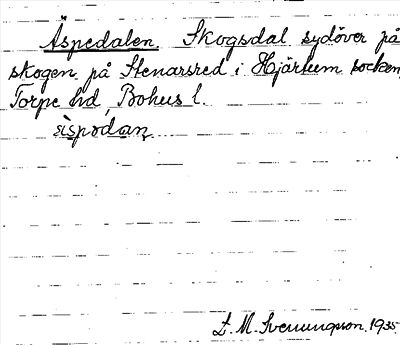 Äspedalen. Skogsdal sydöver på
skogen på Stenarsred i Hjärtum socken,
Torpe hd, Bohus l.
L. M. Svenungsson. 1935.